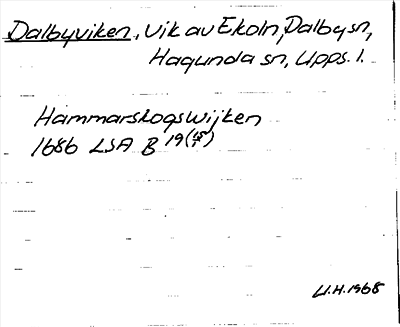 Dalbyviken, vik av Ekoln, Dalby sn,
Hagunda sn, Upps. l.
Hammarskogs Wijken
1686 LSA B 19
U.H. 1968